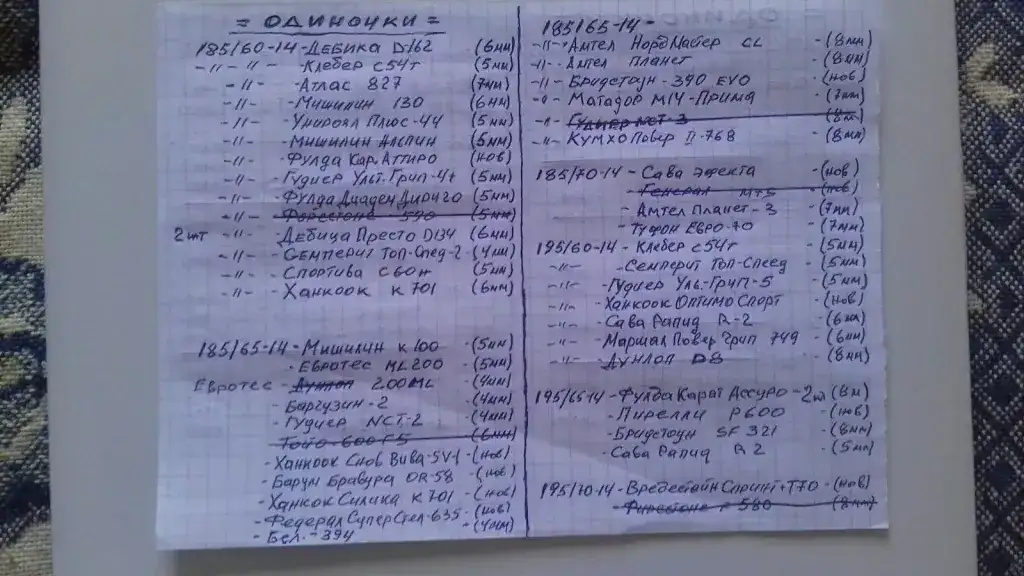 = ОДИНОЧКИ =
185/60-14 - ДЕБИКА D162 (6мм)
-"- -"- - Клебер С54т (5мм)
-"- - Атлас 827 (7мм)
-"- - Мишилин 130 (6мм)
-"- - Унироял Плюс-44 (5мм)
-"- - Мишилин Алпин (5мм)
-"- - Фулда Кар. Аттиро (нов)
-"- - Гудиер Ульт. Грип-4+ (5мм)
-"- - Фулда Диадем (5мм)
-"- - Фарестоне 590 (5мм)
2шт -"- - Дебица Престо D134 (6мм)
-"- - Семперит Топ-Спед-2 (4мм)
-"- - Спортива С60н (5мм)
-"- - Ханкоок К701 (6мм)
185/65-14 - Мишилин К100 (5мм)
- Евротес ML200 (5мм)
Евротес - Дунлоп 200ML - (4мм)
- Баргузин-2 - (4мм)
- Гудиер NCT-2 - (4мм)
- Тойо 600 F5 - (6мм)
- Ханкоок Снов Вива-SV1 - (нов)
- Барум Бравура OR-58 - (нов)
- Ханкок Силика К701 - (нов)
- Федерал Супер Стел-635 - (нов)
- Бел. - 394 - (4мм)
195/65-14 -
-"- - Амтел НордМастер CL - (8мм)
-"- - Амтел планет - (8мм)
-"- - Бридстоун - 390 EVO - (нов)
-"- - Матадор М14-Прима - (7мм)
-"- - Гудиер NCT-3 - (8м)
-"- - Кумхо Повер П-768 - (8мм)
185/70-14 - Сава эфекта - (нов)
- Генерал М+S - (нов)
- Амтел Планет-3 - (7мм)
- Тусон ЕВРО-70 - (7мм)
195/60-14 - Клебер С54т - (5мм)
-"- - Семперит Топ-Спеед - (5мм)
-"- - Гудиер Уль.-Грип-5 - (5мм)
-"- - Ханкоок Оптимо Спорт - (нов)
-"- - Сава Рапид R-2 - (6мм)
-"- - Маршал Повер Грип 749 - (6мм)
-"- - Дунлоп D8 - (8мм)
195/65-14 - Фулда Карат Ассуро - 2шт (8м)
- Пирелли P600 - (нов)
- Бридстоун SF 321 - (8мм)
- Сава Рапид R2 - (5мм)
195/70-14 - Вредестайн Спринт+Т70 - (нов)
- Фирестоне F 580 (8мм)